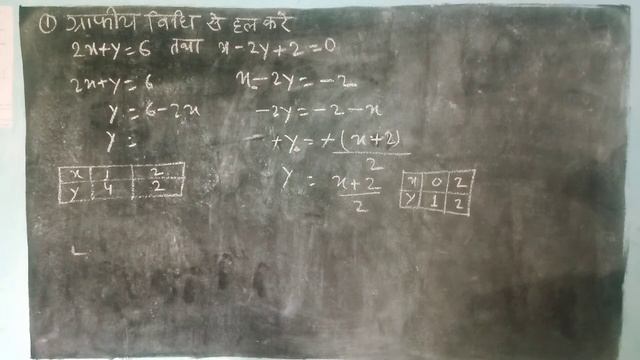 ① ग्राफीय विधि से हल करे
2x+y=6 तथा x-2y+2=0
2x+y=6
y=6-2x
y=
x 1 2
y 4 2
x-2y=-2
-2y=-2-x
+y=+(x+2)
2
y = x+2
2
x 0 2
y 1 2